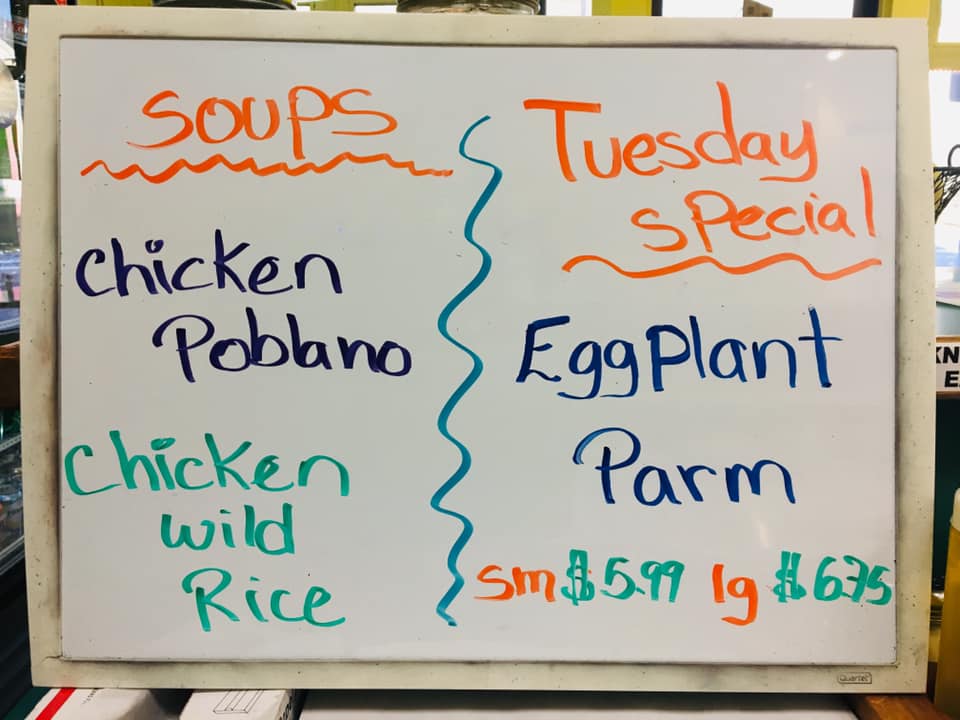 SOUPS
Chicken
Poblano
Chicken
wild
Rice
Tuesday
special
Eggplant
Parm
sm $5.99 lg $6.75
Quartet